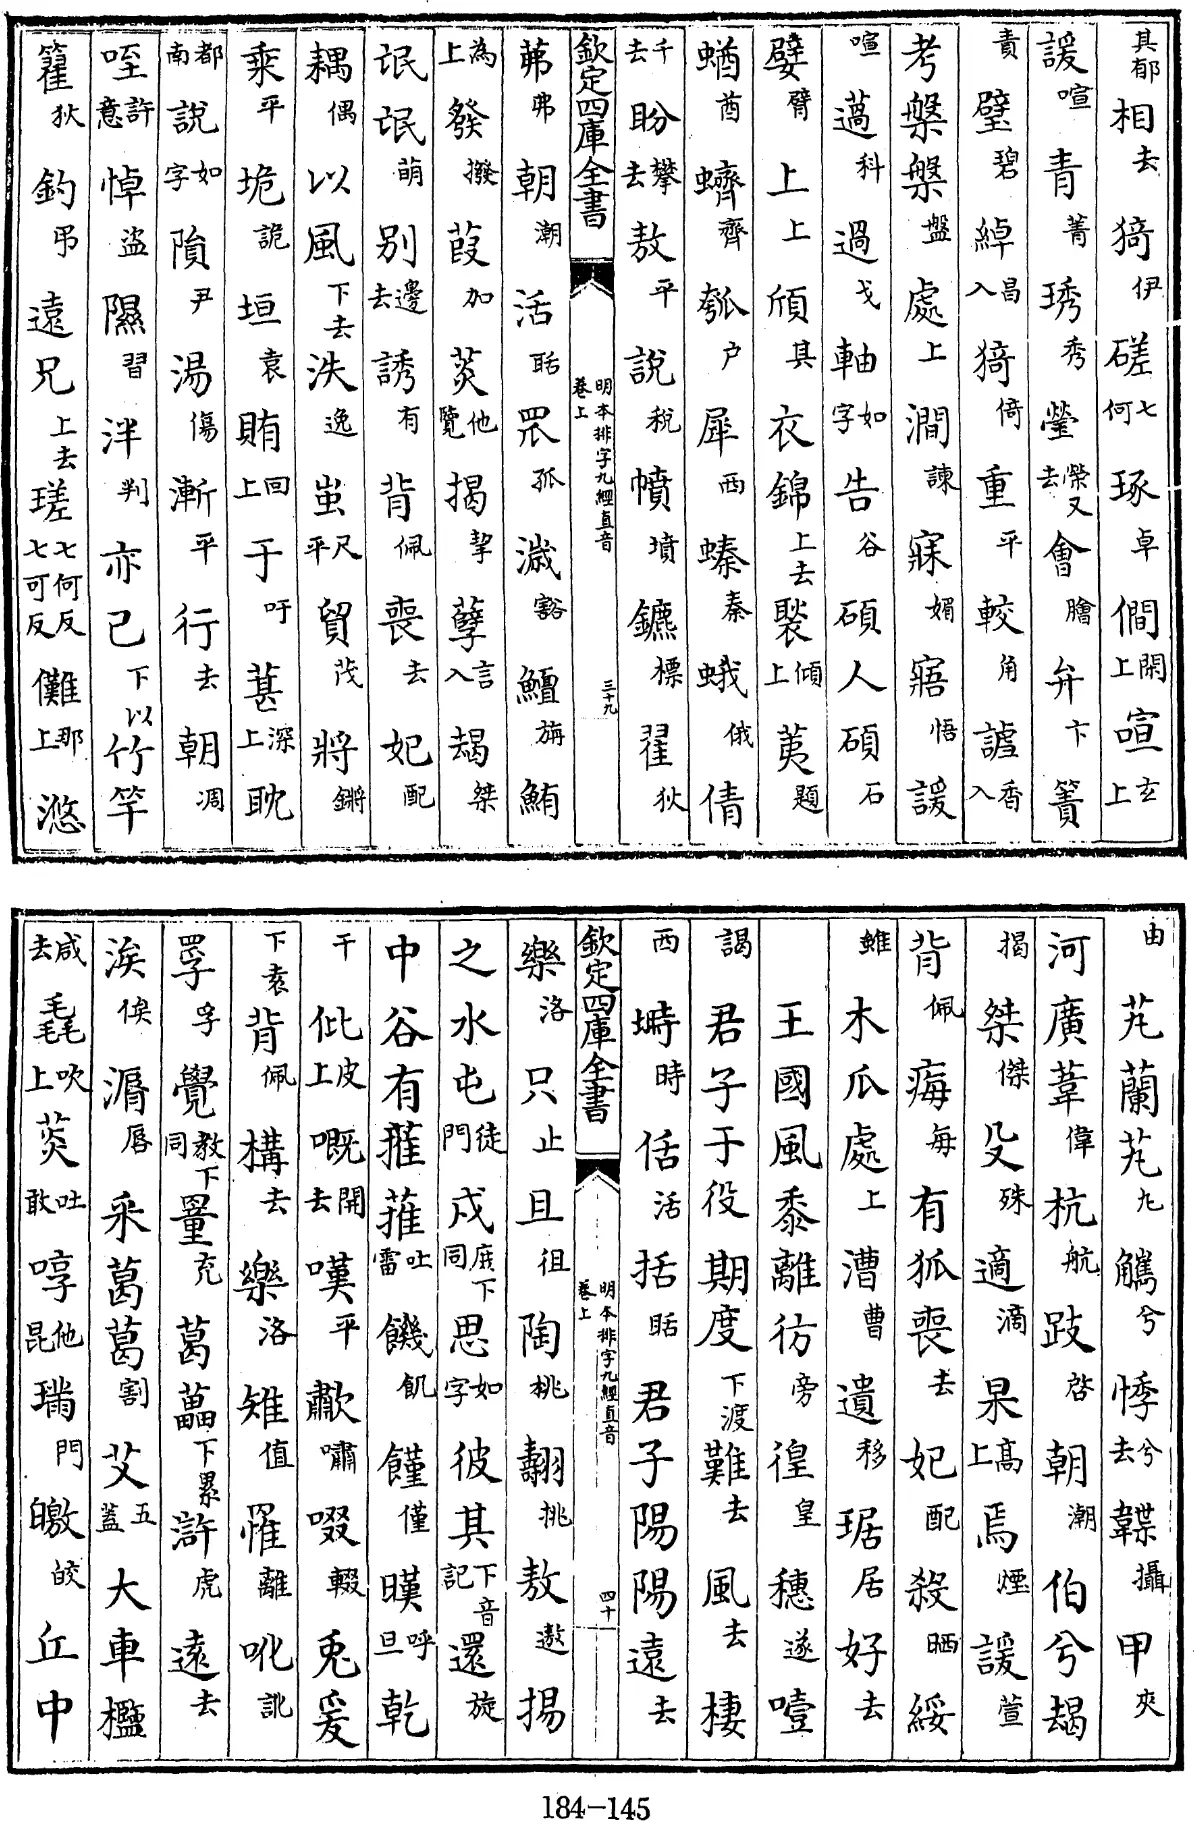 其郁相去猗伊磋七何琢卓僩閑上喧玄上
諼喧青菁琇秀瑩榮又去會膾弁卞簀
責璧碧綽昌入猗倚重平較角謔香入
考槃槃盤處上澗諫寐媚寤悟諼
喧薖科過戈軸如字告谷碩人碩石
嬖臂上上頎其衣錦上去褧傾上荑題
蝤酋蠐齊瓠户犀西螓秦蛾俄倩
千去盼攀去敖平說税幩墳鑣標翟狄
欽定四庫全書 明本排字九經直音 卷上 三十九
茀弗朝潮活聒罛孤濊豁鱣旃鮪
為上發撥葭加菼他覽揭挈孽言入朅桀
氓氓萌别邊去誘有背佩喪去妃配
耦偶以風下去泆逸蚩尺平貿茂將鏘
乘平垝詭垣袁賄回上于吁葚深上耽
都南說如字隕尹湯傷漸平行去朝凋
咥許意悼盜隰習泮判亦已下以竹竿
籊狄釣弔遠兄上去瑳七何反七可反儺那上滺
由芄蘭芄九觿兮悸兮去韘攝甲夾
河廣葦偉杭航跂啓朝潮伯兮朅
揭桀傑殳殊適滴杲高上焉煙諼萱
背佩痗每有狐喪去妃配殺晒綏
雖木瓜處上漕曹遺移琚居好去
王國風黍離彷旁徨皇穗遂噎
謁君子于役期度下渡難去風去棲
西塒時佸活括聒君子陽陽遠去
欽定四庫全書 明本排字九經直音 卷上 四十
樂洛只止且徂陶桃翿挑敖遨揚
之水屯徒門戍庶下同思如字彼其下音記還旋
中谷有蓷蓷吐雷饑飢饉僅暵呼旦乾
干仳皮上嘅開去嘆平歗嘯啜輟兎爰
下袁背佩構去樂洛雉值罹離吪訛
罦孚覺教下同罿充葛藟下累滸虎遠去
涘俟漘唇采葛葛割艾五蓋大車檻
咸去毳吹上菼吐敢啍他昆璊門皦皎丘中
184-145